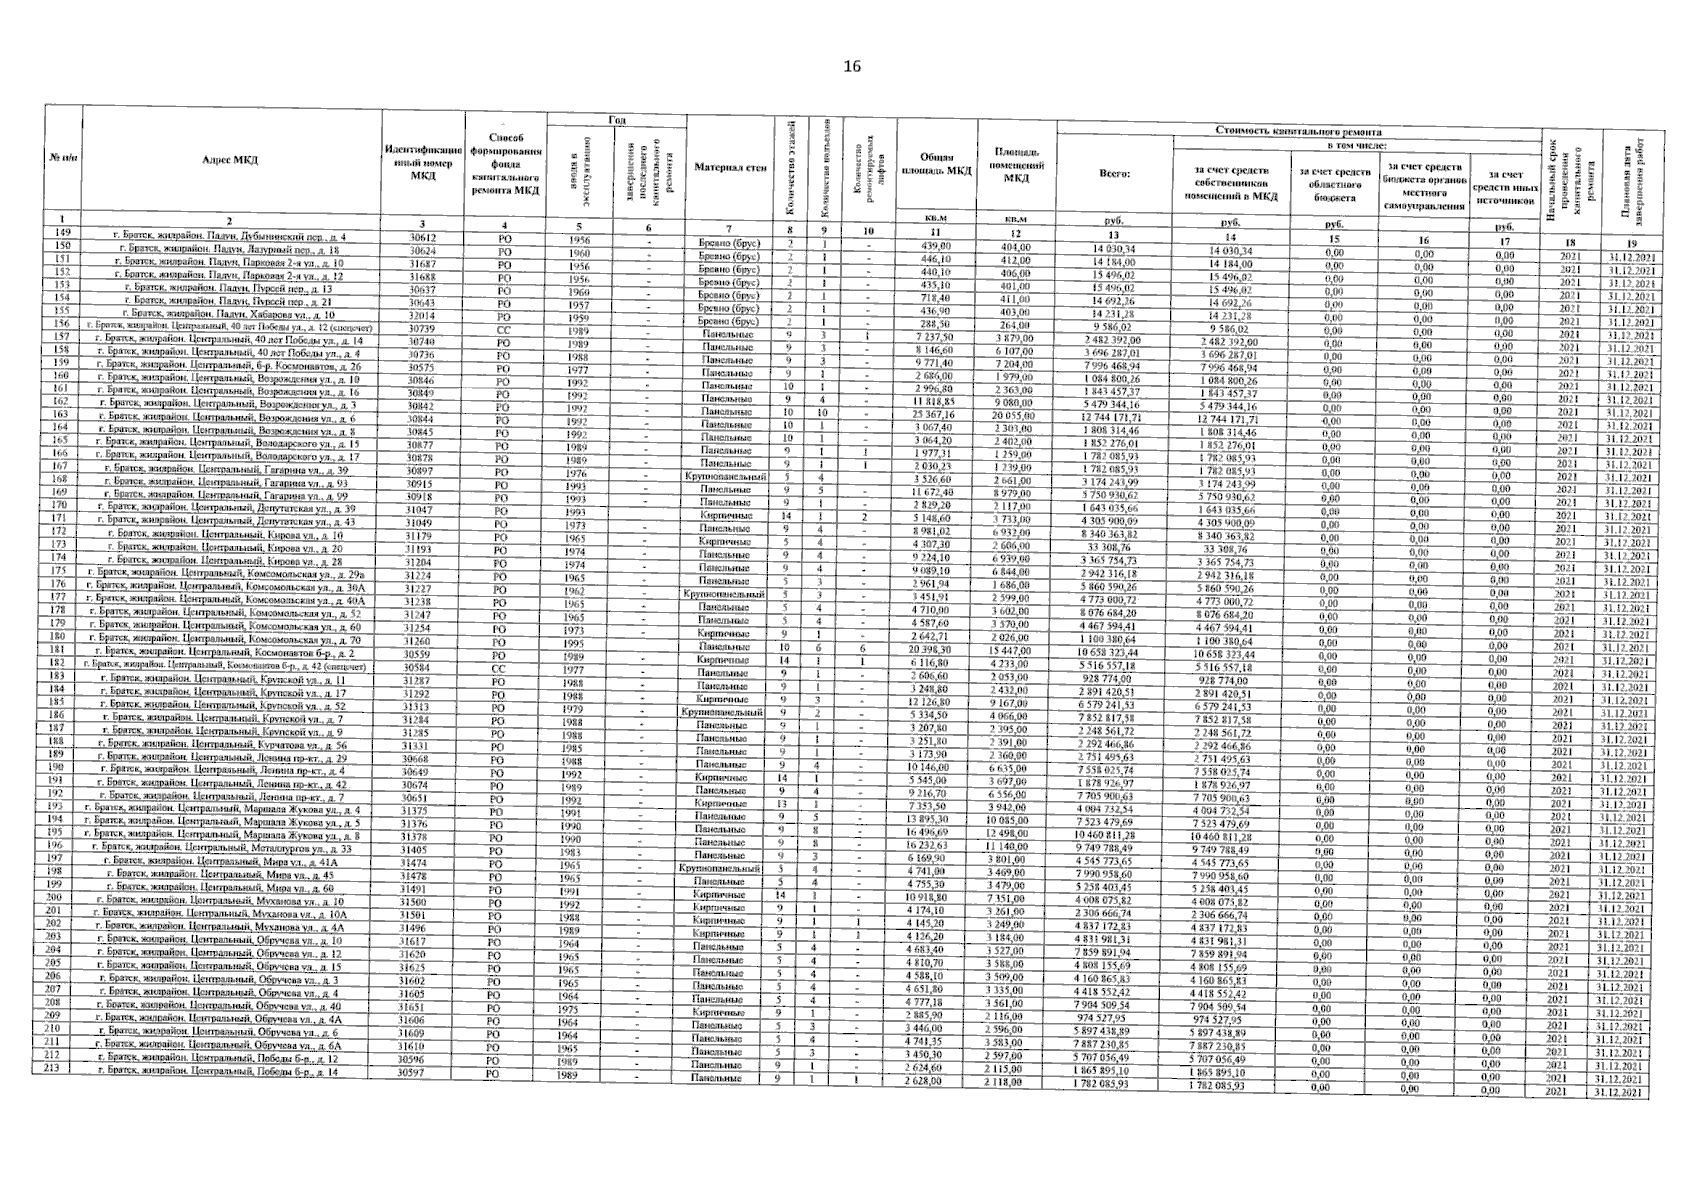 16
№ п/п
Адрес МКД
Идентификационный номер МКД
Способ формирования фонда капитального ремонта МКД
Год
ввода в эксплуатацию
завершения последнего капитального ремонта
Материал стен
Количество этажей
Количество подъездов
Количество ремонтируемых лифтов
Общая площадь МКД
Площадь помещений МКД
Стоимость капитального ремонта
Всего:
в том числе:
за счет средств собственников помещений в МКД
за счет средств областного бюджета
за счет средств бюджета органов местного самоуправления
за счет средств иных источников
Начальный срок проведения капитального ремонта
Плановая дата завершения работ
кв.м кв.м руб. руб. руб. руб.
1 2 3 4 5 6 7 8 9 10 11 12 13 14 15 16 17 18 19
149 г. Братск, жилрайон. Падун, Дубынинский пер., д. 4 30612 РО 1956 - Бревно (брус) 2 1 - 439,00 404,00 14 030,34 14 030,34 0,00 0,00 0,00 2021 31.12.2021
150 г. Братск, жилрайон. Падун, Лазурный пер., д. 18 30624 РО 1960 - Бревно (брус) 2 1 - 446,10 412,00 14 184,00 14 184,00 0,00 0,00 0,00 2021 31.12.2021
151 г. Братск, жилрайон. Падун, Парковая 2-я ул., д. 10 31687 РО 1956 - Бревно (брус) 2 1 - 440,10 406,00 15 496,02 15 496,02 0,00 0,00 0,00 2021 31.12.2021
152 г. Братск, жилрайон. Падун, Парковая 2-я ул., д. 12 31688 РО 1956 - Бревно (брус) 2 1 - 435,10 401,00 15 496,02 15 496,02 0,00 0,00 0,00 2021 31.12.2021
153 г. Братск, жилрайон. Падун, Пурсей пер., д. 13 30637 РО 1960 - Бревно (брус) 2 1 - 718,40 411,00 14 692,26 14 692,26 0,00 0,00 0,00 2021 31.12.2021
154 г. Братск, жилрайон. Падун, Пурсей пер., д. 21 30643 РО 1957 - Бревно (брус) 2 1 - 436,90 403,00 14 231,28 14 231,28 0,00 0,00 0,00 2021 31.12.2021
155 г. Братск, жилрайон. Падун, Хабарова ул., д. 10 32014 РО 1959 - Бревно (брус) 2 1 - 288,50 264,00 9 586,02 9 586,02 0,00 0,00 0,00 2021 31.12.2021
156 г. Братск, жилрайон. Центральный, 40 лет Победы ул., д. 12 (спецсчет) 30739 СС 1989 - Панельные 9 3 1 7 237,50 3 879,00 2 482 392,00 2 482 392,00 0,00 0,00 0,00 2021 31.12.2021
157 г. Братск, жилрайон. Центральный, 40 лет Победы ул., д. 14 30740 РО 1989 - Панельные 9 3 - 8 146,60 6 107,00 3 696 287,01 3 696 287,01 0,00 0,00 0,00 2021 31.12.2021
158 г. Братск, жилрайон. Центральный, 40 лет Победы ул., д. 4 30736 РО 1988 - Панельные 9 3 - 9 771,40 7 204,00 7 996 468,94 7 996 468,94 0,00 0,00 0,00 2021 31.12.2021
159 г. Братск, жилрайон. Центральный, б-р. Космонавтов, д. 26 30575 РО 1977 - Панельные 9 1 - 2 686,00 1 979,00 1 084 800,26 1 084 800,26 0,00 0,00 0,00 2021 31.12.2021
160 г. Братск, жилрайон. Центральный, Возрождения ул., д. 10 30846 РО 1992 - Панельные 10 1 - 2 996,80 2 363,00 1 843 457,37 1 843 457,37 0,00 0,00 0,00 2021 31.12.2021
161 г. Братск, жилрайон. Центральный, Возрождения ул., д. 16 30849 РО 1992 - Панельные 9 4 - 11 818,85 9 080,00 5 479 344,16 5 479 344,16 0,00 0,00 0,00 2021 31.12.2021
162 г. Братск, жилрайон. Центральный, Возрождения ул., д. 3 30842 РО 1992 - Панельные 10 10 - 25 367,16 20 055,00 12 744 171,71 12 744 171,71 0,00 0,00 0,00 2021 31.12.2021
163 г. Братск, жилрайон. Центральный, Возрождения ул., д. 6 30844 РО 1992 - Панельные 10 1 - 3 067,40 2 303,00 1 808 314,46 1 808 314,46 0,00 0,00 0,00 2021 31.12.2021
164 г. Братск, жилрайон. Центральный, Возрождения ул., д. 8 30845 РО 1992 - Панельные 10 1 - 3 064,20 2 402,00 1 852 276,01 1 852 276,01 0,00 0,00 0,00 2021 31.12.2021
165 г. Братск, жилрайон. Центральный, Володарского ул., д. 15 30877 РО 1989 - Панельные 9 1 1 1 977,31 1 259,00 1 782 085,93 1 782 085,93 0,00 0,00 0,00 2021 31.12.2021
166 г. Братск, жилрайон. Центральный, Володарского ул., д. 17 30878 РО 1989 - Панельные 9 1 1 2 030,23 1 239,00 1 782 085,93 1 782 085,93 0,00 0,00 0,00 2021 31.12.2021
167 г. Братск, жилрайон. Центральный, Гагарина ул., д. 39 30897 РО 1976 - Крупнопанельный 5 4 - 3 526,60 2 661,00 3 174 243,99 3 174 243,99 0,00 0,00 0,00 2021 31.12.2021
168 г. Братск, жилрайон. Центральный, Гагарина ул., д. 93 30915 РО 1993 - Панельные 9 5 - 11 672,40 8 979,00 5 750 930,62 5 750 930,62 0,00 0,00 0,00 2021 31.12.2021
169 г. Братск, жилрайон. Центральный, Гагарина ул., д. 99 30918 РО 1993 - Панельные 9 1 - 2 829,20 2 117,00 1 643 035,66 1 643 035,66 0,00 0,00 0,00 2021 31.12.2021
170 г. Братск, жилрайон. Центральный, Депутатская ул., д. 39 31047 РО 1993 - Кирпичные 14 1 2 5 148,60 3 733,00 4 305 900,09 4 305 900,09 0,00 0,00 0,00 2021 31.12.2021
171 г. Братск, жилрайон. Центральный, Депутатская ул., д. 43 31049 РО 1973 - Панельные 9 4 - 8 981,02 6 932,00 8 340 363,82 8 340 363,82 0,00 0,00 0,00 2021 31.12.2021
172 г. Братск, жилрайон. Центральный, Кирова ул., д. 10 31179 РО 1965 - Кирпичные 5 4 - 4 307,30 2 606,00 33 308,76 33 308,76 0,00 0,00 0,00 2021 31.12.2021
173 г. Братск, жилрайон. Центральный, Кирова ул., д. 20 31193 РО 1974 - Панельные 9 4 - 9 224,10 6 939,00 3 365 754,73 3 365 754,73 0,00 0,00 0,00 2021 31.12.2021
174 г. Братск, жилрайон. Центральный, Кирова ул., д. 28 31204 РО 1974 - Панельные 9 4 - 9 089,10 6 844,00 2 942 316,18 2 942 316,18 0,00 0,00 0,00 2021 31.12.2021
175 г. Братск, жилрайон. Центральный, Комсомольская ул., д. 29а 31224 РО 1965 - Панельные 5 3 - 2 961,94 1 686,00 5 860 590,26 5 860 590,26 0,00 0,00 0,00 2021 31.12.2021
176 г. Братск, жилрайон. Центральный, Комсомольская ул., д. 30А 31227 РО 1962 - Крупнопанельный 5 3 - 3 451,91 2 599,00 4 773 000,72 4 773 000,72 0,00 0,00 0,00 2021 31.12.2021
177 г. Братск, жилрайон. Центральный, Комсомольская ул., д. 40А 31238 РО 1965 - Панельные 5 4 - 4 710,00 3 602,00 8 076 684,20 8 076 684,20 0,00 0,00 0,00 2021 31.12.2021
178 г. Братск, жилрайон. Центральный, Комсомольская ул., д. 52 31247 РО 1965 - Панельные 5 4 - 4 587,60 3 570,00 4 467 594,41 4 467 594,41 0,00 0,00 0,00 2021 31.12.2021
179 г. Братск, жилрайон. Центральный, Комсомольская ул., д. 60 31254 РО 1973 - Кирпичные 9 1 - 2 642,71 2 026,00 1 100 380,64 1 100 380,64 0,00 0,00 0,00 2021 31.12.2021
180 г. Братск, жилрайон. Центральный, Комсомольская ул., д. 70 31260 РО 1995 - Панельные 10 6 6 20 398,30 15 447,00 10 658 323,44 10 658 323,44 0,00 0,00 0,00 2021 31.12.2021
181 г. Братск, жилрайон. Центральный, Космонавтов б-р., д. 2 30559 РО 1989 - Кирпичные 14 1 1 6 116,80 4 233,00 5 516 557,18 5 516 557,18 0,00 0,00 0,00 2021 31.12.2021
182 г. Братск, жилрайон. Центральный, Космонавтов б-р., д. 42 (спецсчет) 30584 СС 1977 - Панельные 9 1 - 2 606,60 2 053,00 928 774,00 928 774,00 0,00 0,00 0,00 2021 31.12.2021
183 г. Братск, жилрайон. Центральный, Крупской ул., д. 11 31287 РО 1988 - Панельные 9 1 - 3 248,80 2 432,00 2 891 420,51 2 891 420,51 0,00 0,00 0,00 2021 31.12.2021
184 г. Братск, жилрайон. Центральный, Крупской ул., д. 17 31292 РО 1988 - Кирпичные 9 3 - 12 126,80 9 167,00 6 579 241,53 6 579 241,53 0,00 0,00 0,00 2021 31.12.2021
185 г. Братск, жилрайон. Центральный, Крупской ул., д. 52 31313 РО 1979 - Крупнопанельный 9 2 - 5 334,50 4 066,00 7 852 817,58 7 852 817,58 0,00 0,00 0,00 2021 31.12.2021
186 г. Братск, жилрайон. Центральный, Крупской ул., д. 7 31284 РО 1988 - Панельные 9 1 - 3 207,80 2 395,00 2 248 561,72 2 248 561,72 0,00 0,00 0,00 2021 31.12.2021
187 г. Братск, жилрайон. Центральный, Крупской ул., д. 9 31285 РО 1988 - Панельные 9 1 - 3 251,80 2 391,00 2 292 466,86 2 292 466,86 0,00 0,00 0,00 2021 31.12.2021
188 г. Братск, жилрайон. Центральный, Курчатова ул., д. 56 31331 РО 1985 - Панельные 9 1 - 3 173,90 2 360,00 2 751 495,63 2 751 495,63 0,00 0,00 0,00 2021 31.12.2021
189 г. Братск, жилрайон. Центральный, Ленина пр-кт., д. 29 30668 РО 1988 - Панельные 9 4 - 10 146,00 6 635,00 7 558 025,74 7 558 025,74 0,00 0,00 0,00 2021 31.12.2021
190 г. Братск, жилрайон. Центральный, Ленина пр-кт., д. 4 30649 РО 1992 - Кирпичные 14 1 - 5 545,00 3 697,00 1 878 926,97 1 878 926,97 0,00 0,00 0,00 2021 31.12.2021
191 г. Братск, жилрайон. Центральный, Ленина пр-кт., д. 42 30674 РО 1989 - Панельные 9 4 - 9 216,70 6 556,00 7 705 900,63 7 705 900,63 0,00 0,00 0,00 2021 31.12.2021
192 г. Братск, жилрайон. Центральный, Ленина пр-кт., д. 7 30651 РО 1992 - Кирпичные 13 1 - 7 353,50 3 942,00 4 004 732,54 4 004 732,54 0,00 0,00 0,00 2021 31.12.2021
193 г. Братск, жилрайон. Центральный, Маршала Жукова ул., д. 4 31375 РО 1991 - Панельные 9 5 - 13 895,30 10 085,00 7 523 479,69 7 523 479,69 0,00 0,00 0,00 2021 31.12.2021
194 г. Братск, жилрайон. Центральный, Маршала Жукова ул., д. 5 31376 РО 1990 - Панельные 9 8 - 16 496,69 12 498,00 10 460 811,28 10 460 811,28 0,00 0,00 0,00 2021 31.12.2021
195 г. Братск, жилрайон. Центральный, Маршала Жукова ул., д. 8 31378 РО 1990 - Панельные 9 8 - 16 232,63 11 140,00 9 749 788,49 9 749 788,49 0,00 0,00 0,00 2021 31.12.2021
196 г. Братск, жилрайон. Центральный, Металлургов ул., д. 33 31405 РО 1983 - Панельные 9 3 - 6 169,90 3 801,00 4 545 773,65 4 545 773,65 0,00 0,00 0,00 2021 31.12.2021
197 г. Братск, жилрайон. Центральный, Мира ул., д. 41А 31474 РО 1965 - Крупнопанельный 5 4 - 4 741,00 3 469,00 7 990 958,60 7 990 958,60 0,00 0,00 0,00 2021 31.12.2021
198 г. Братск, жилрайон. Центральный, Мира ул., д. 45 31478 РО 1965 - Панельные 5 4 - 4 755,30 3 479,00 5 258 403,45 5 258 403,45 0,00 0,00 0,00 2021 31.12.2021
199 г. Братск, жилрайон. Центральный, Мира ул., д. 60 31491 РО 1991 - Кирпичные 14 1 - 10 918,80 7 351,00 4 008 075,82 4 008 075,82 0,00 0,00 0,00 2021 31.12.2021
200 г. Братск, жилрайон. Центральный, Муханова ул., д. 10 31500 РО 1992 - Кирпичные 9 1 - 4 174,10 3 261,00 2 306 666,74 2 306 666,74 0,00 0,00 0,00 2021 31.12.2021
201 г. Братск, жилрайон. Центральный, Муханова ул., д. 10А 31501 РО 1988 - Кирпичные 9 1 1 4 145,20 3 249,00 4 837 172,83 4 837 172,83 0,00 0,00 0,00 2021 31.12.2021
202 г. Братск, жилрайон. Центральный, Муханова ул., д. 4А 31496 РО 1989 - Кирпичные 9 1 1 4 126,20 3 184,00 4 831 981,31 4 831 981,31 0,00 0,00 0,00 2021 31.12.2021
203 г. Братск, жилрайон. Центральный, Обручева ул., д. 10 31617 РО 1964 - Панельные 5 4 - 4 683,40 3 527,00 7 859 891,94 7 859 891,94 0,00 0,00 0,00 2021 31.12.2021
204 г. Братск, жилрайон. Центральный, Обручева ул., д. 12 31620 РО 1965 - Панельные 5 4 - 4 810,70 3 588,00 4 808 155,69 4 808 155,69 0,00 0,00 0,00 2021 31.12.2021
205 г. Братск, жилрайон. Центральный, Обручева ул., д. 15 31625 РО 1965 - Панельные 5 4 - 4 588,10 3 509,00 4 160 865,83 4 160 865,83 0,00 0,00 0,00 2021 31.12.2021
206 г. Братск, жилрайон. Центральный, Обручева ул., д. 3 31602 РО 1965 - Панельные 5 4 - 4 651,80 3 335,00 4 418 552,42 4 418 552,42 0,00 0,00 0,00 2021 31.12.2021
207 г. Братск, жилрайон. Центральный, Обручева ул., д. 4 31605 РО 1964 - Панельные 5 4 - 4 777,18 3 561,00 7 904 509,54 7 904 509,54 0,00 0,00 0,00 2021 31.12.2021
208 г. Братск, жилрайон. Центральный, Обручева ул., д. 40 31651 РО 1975 - Кирпичные 9 1 - 2 885,90 2 116,00 974 527,95 974 527,95 0,00 0,00 0,00 2021 31.12.2021
209 г. Братск, жилрайон. Центральный, Обручева ул., д. 4А 31606 РО 1964 - Панельные 5 3 - 3 446,00 2 596,00 5 897 438,89 5 897 438,89 0,00 0,00 0,00 2021 31.12.2021
210 г. Братск, жилрайон. Центральный, Обручева ул., д. 6 31609 РО 1964 - Панельные 5 4 - 4 741,35 3 583,00 7 887 230,85 7 887 230,85 0,00 0,00 0,00 2021 31.12.2021
211 г. Братск, жилрайон. Центральный, Обручева ул., д. 6А 31610 РО 1965 - Панельные 5 3 - 3 450,30 2 597,00 5 707 056,49 5 707 056,49 0,00 0,00 0,00 2021 31.12.2021
212 г. Братск, жилрайон. Центральный, Победы б-р., д. 12 30596 РО 1989 - Панельные 9 1 - 2 624,60 2 115,00 1 865 895,10 1 865 895,10 0,00 0,00 0,00 2021 31.12.2021
213 г. Братск, жилрайон. Центральный, Победы б-р., д. 14 30597 РО 1989 - Панельные 9 1 1 2 628,00 2 118,00 1 782 085,93 1 782 085,93 0,00 0,00 0,00 2021 31.12.2021